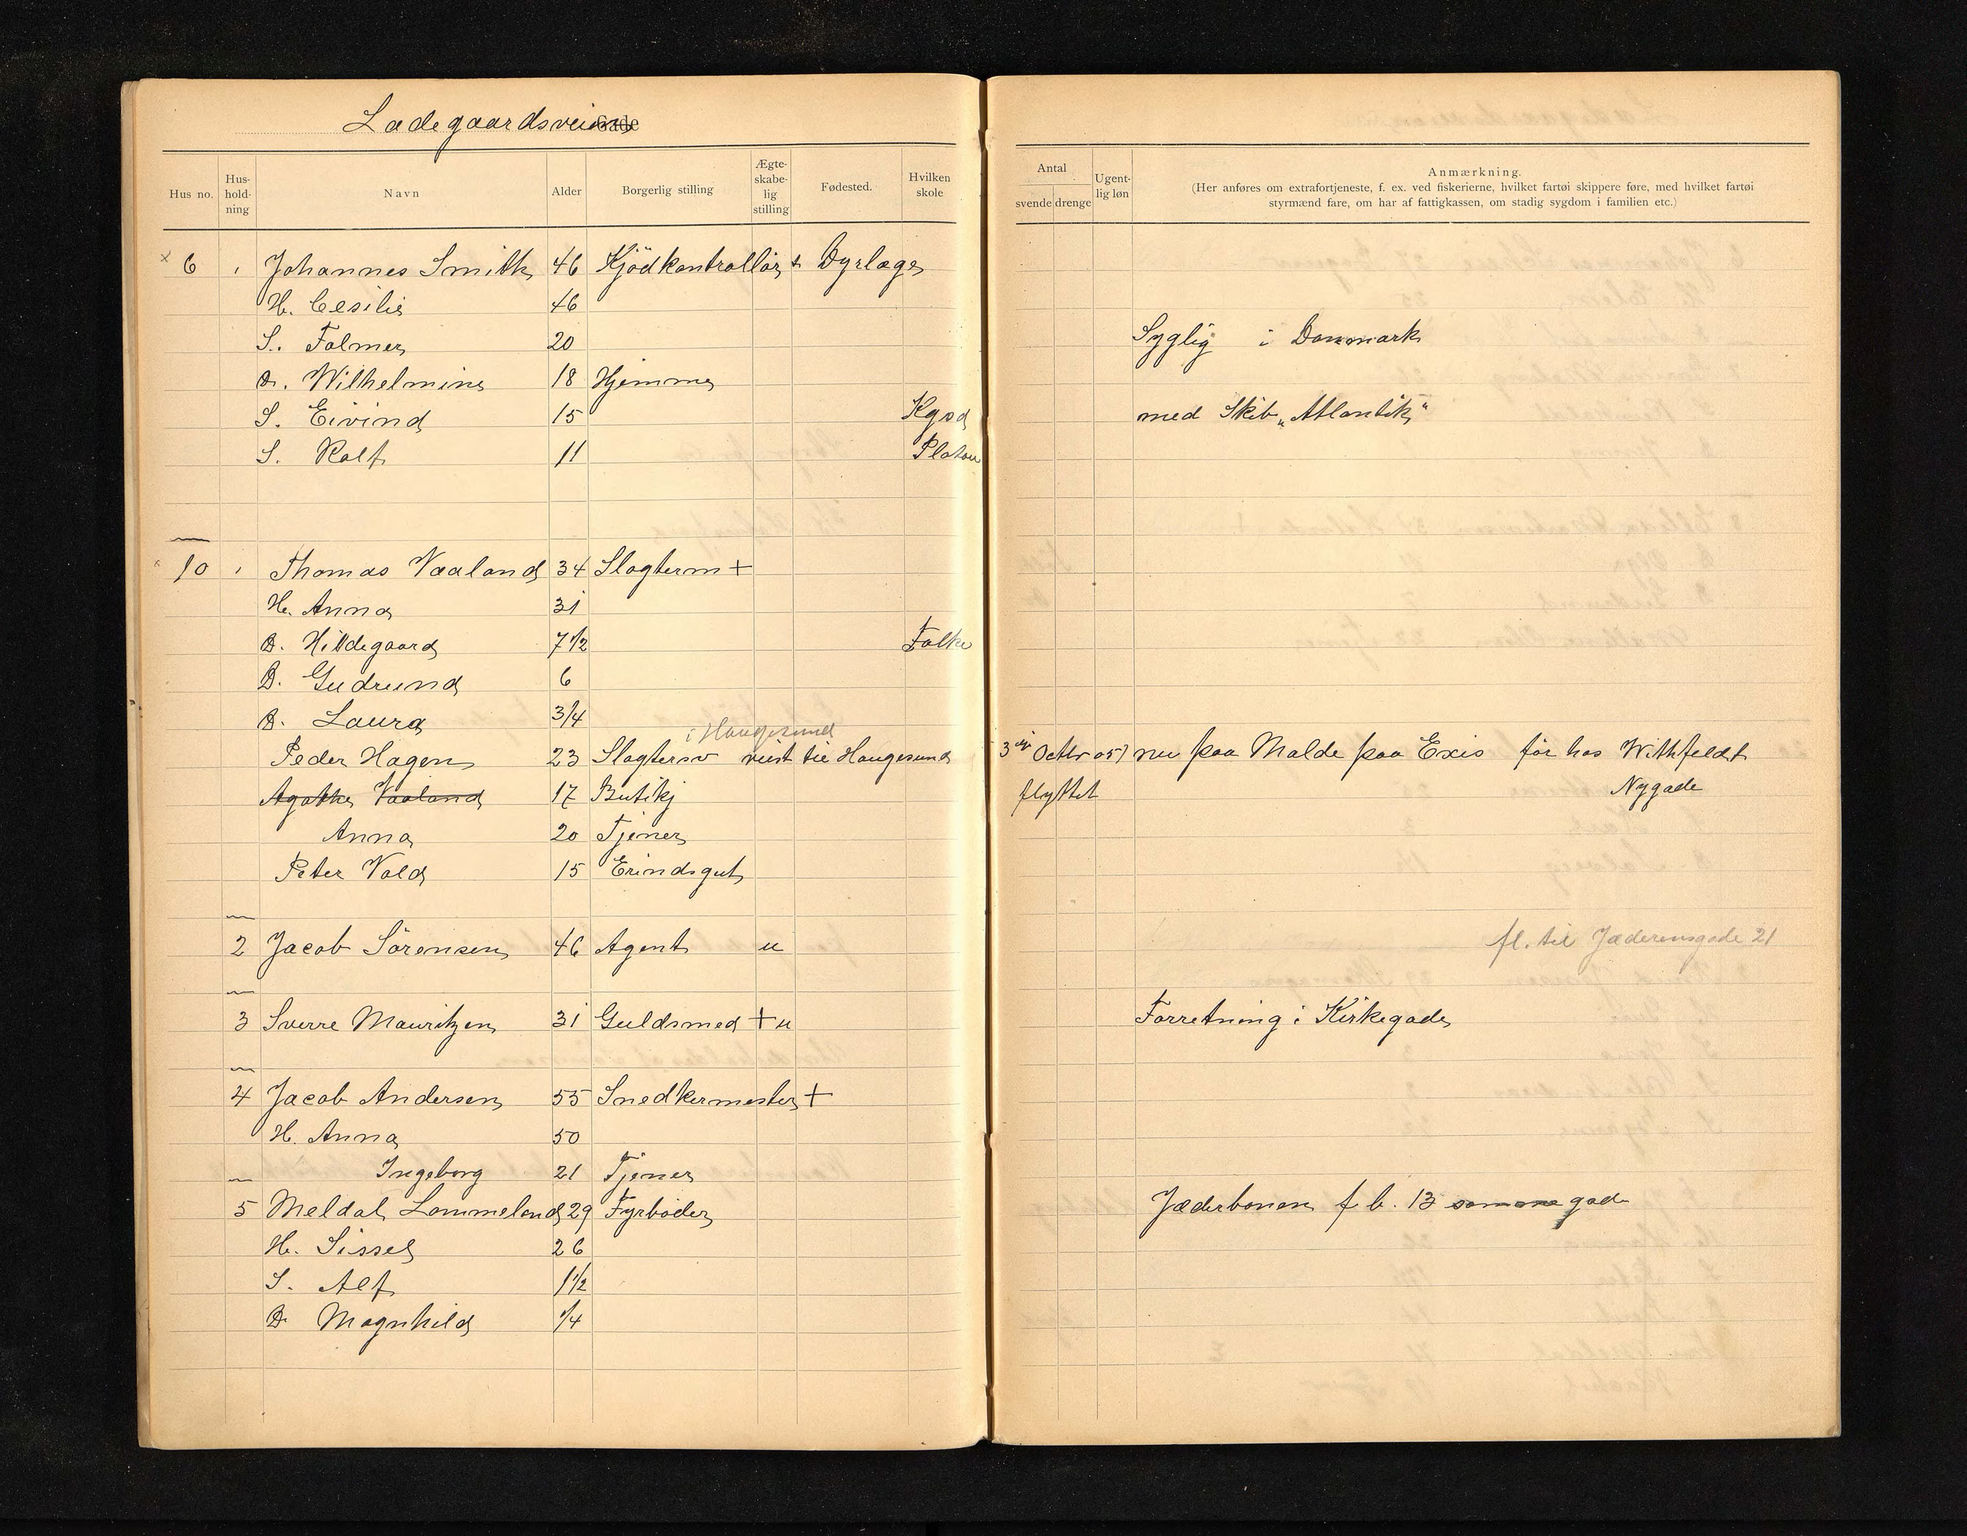 Ladegaardsveien Gade
Hus no. Hus-hold-ning Navn Alder Borgerlig stilling Ægte-skabe-lig stilling Fødested. Hvilken skole
Antal svende drenge Ugent-lig løn Anmærkning.
(Her anføres om extrafortjeneste, f. ex. ved fiskerierne, hvilket fartøi skippere føre, med hvilket fartøi
styrmænd fare, om har af fattigkassen, om stadig sygdom i familien etc.)
6 1 Johannes Smith 46 Kjödkontrollör + Dyrlæge
H. Cesilie 46
S. Folmer 20 Syglig i Danmark
D. Wilhelmine 18 Hjemme
S. Eivind 15 Kgsd med Skib „Atlantik"
S. Rolf 11 Platou
10 1 Thomas Vaaland 34 Slagterm +
H. Anna 31
D. Hildegaard 7 1/2 Folke
D. Gudrund 6
D. Laura 3/4
i Haugesund
Peder Hagen 23 Slagtersv reist til Haugesund 3die Octbr 05) nu paa Malde paa Exis før hos Withfeldt
Agathe Vaaland 17 Butikj flyttet Nygade
Anna 20 Tjener
Peter Vold 15 Erindsgut
2 Jacob Sörensen 46 Agent u fl. til Jæderensgade 21
3 Sverre Mauritzen 31 Guldsmed + u Forretning i Kirkegade
4 Jacob Andersen 55 Snedkermester +
H. Anna 50
Ingeborg 21 Tjener
5 Meldal Lommeland 29 Fyrböder Jæderbanen f b. 13 samme gade
H. Sissel 26
S. Alf 1 1/2
D. Magnhild 1/4